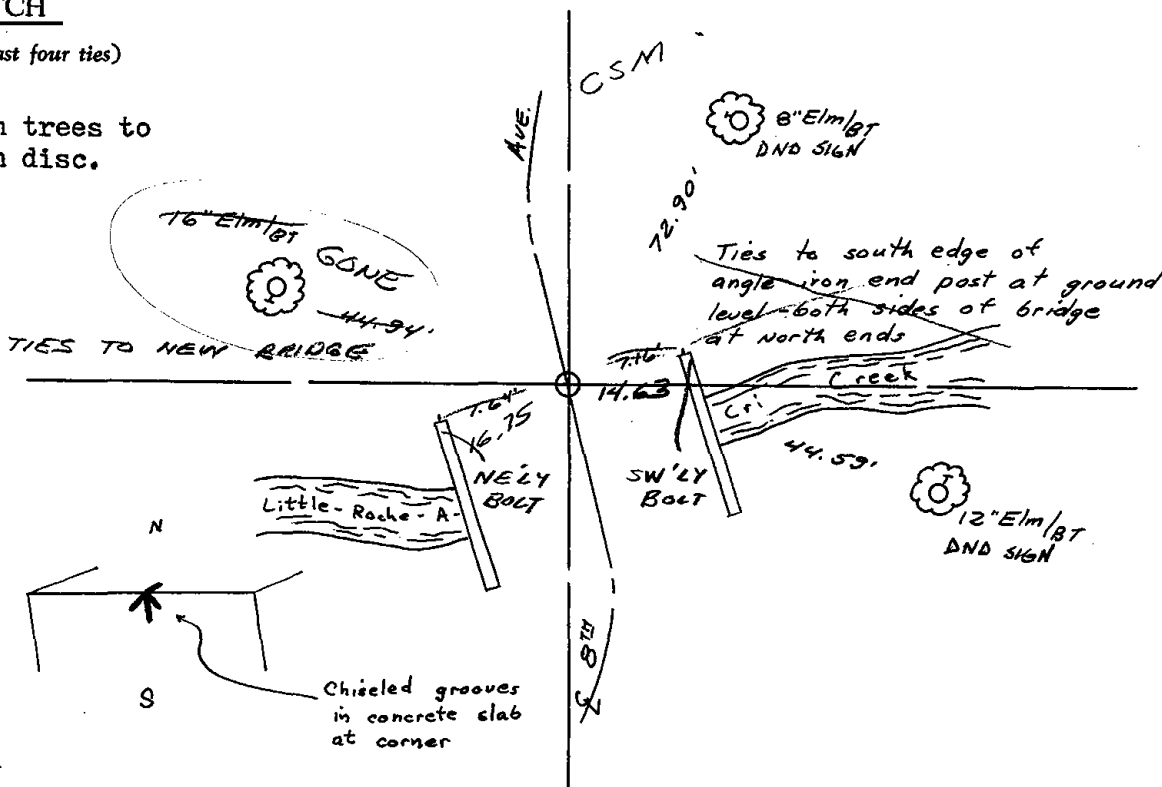 TCH
ast four ties)
n trees to
n disc.
CSM
AVE.
8" Elm/BT
DND SIGN
72.90'
16" Elm/BT GONE
44.94'
Ties to south edge of
angle iron end post at ground
level - both sides of bridge
at North ends
TIES TO NEW BRIDGE
7.16'
14.63
7.64'
16.75
Cri Creek
NE'LY
BOLT
SW'LY
BOLT
44.59'
12" Elm/BT
DND SIGN
Little - Roche - A -
N
S
Chiseled grooves
in concrete slab
at corner
℄ 8TH